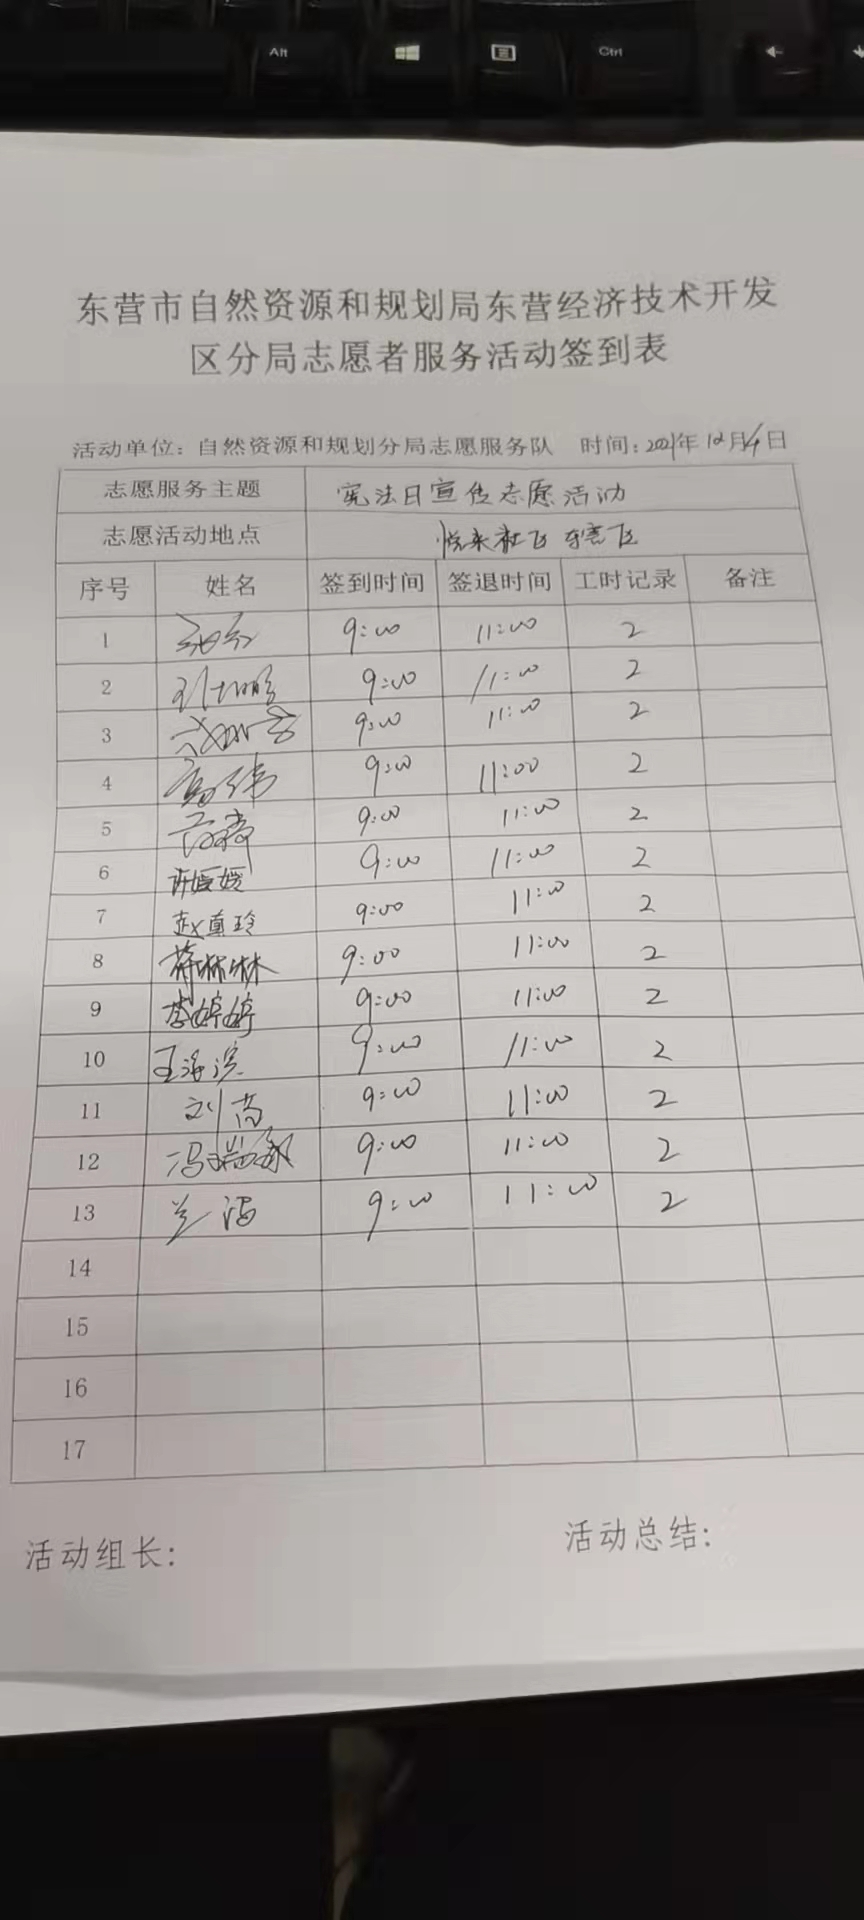 Alt
Ctrl
东营市自然资源和规划局东营经济技术开发
区分局志愿者服务活动签到表
活动单位：自然资源和规划分局志愿服务队 时间：2021年12月4日
志愿服务主题 宪法日宣传志愿活动
志愿活动地点 悦来社区
序号 姓名 签到时间 签退时间 工时记录 备注
1 9:00 11:00 2
2 9:00 11:00 2
3 9:00 11:00 2
4 高伟 9:00 11:00 2
5 9:00 11:00 2
6 许媛媛 9:00 11:00 2
7 赵真玲 9:00 11:00 2
8 蒋琳琳 9:00 11:00 2
9 李婷婷 9:00 11:00 2
10 王海滨 9:00 11:00 2
11 9:00 11:00 2
12 9:00 11:00 2
13 兰海 9:00 11:00 2
14
15
16
17
活动组长： 活动总结：